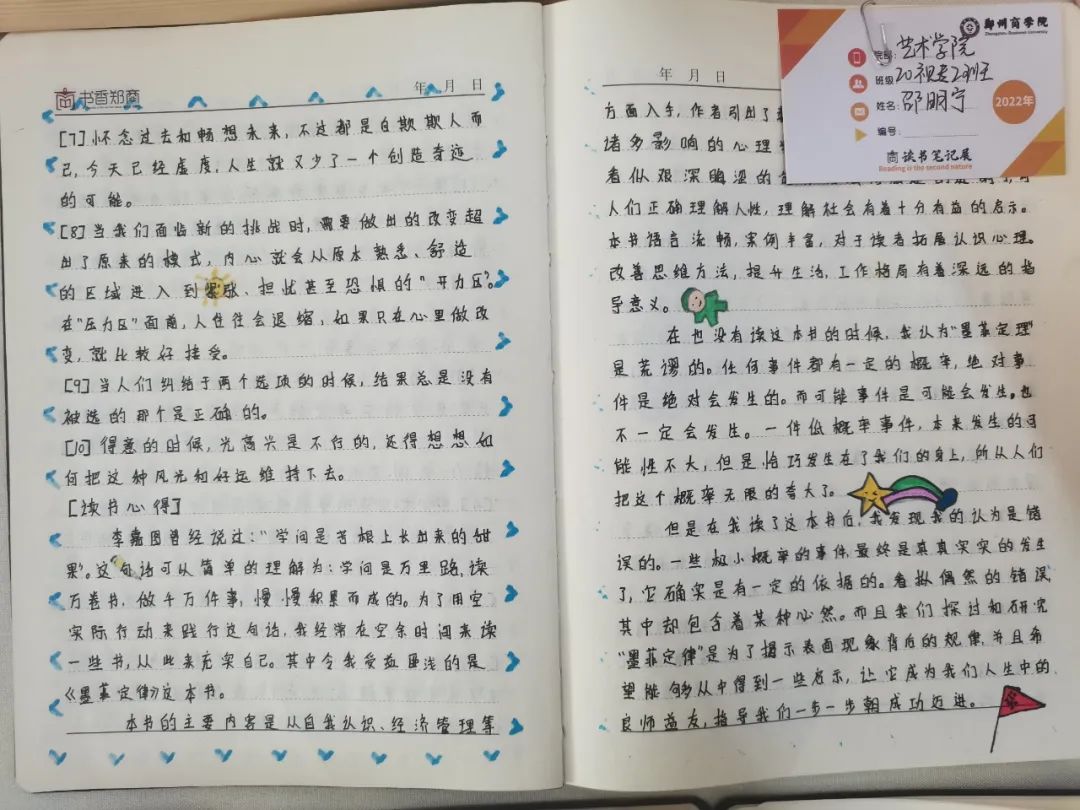 书香郑商
年 月 日
[7]怀念过去和畅想未来,不过都是自欺欺人而
已,今天已经虚度,人生就又少了一个创造奇迹
的可能。
[8]当我们面临新的挑战时,需要做出的改变超
出了原来的模式,内心就会从原本熟悉、舒适
的区域进入到紧张、担忧甚至恐惧的“压力区”。
在“压力区”面前,人往往会退缩,如果只在心里做改
变,就比较好接受。
[9]当人们纠结于两个选项的时候,结果总是没有
被选的那个是正确的。
[10]得意的时候,光高兴是不行的,还得想想如
何把这种风光和好运维持下去。
[读书心得]
李嘉图曾经说过:“学问是苦根上长出来的甜
果”。这句话可以简单的理解为:学问是万里路,读
万卷书,做千万件事,慢慢积累而成的。为了用空
实际行动来践行这句话,我经常在空余时间来读
一些书,从此来充实自己。其中令我受益匪浅的是
《墨菲定律》这本书。
本书的主要内容是从自我认识、经济管理等
年 月 日
方面入手,作者引出了
诸多影响的心理
者似艰深晦涩的
人们正确理解人性,理解社会有着十分有益的启示。
本书语言流畅,案例丰富,对于读者拓展认识心理。
改善思维方法,提升生活,工作格局有着深远的指
导意义。
在也没有读这本书的时候,我认为“墨菲定理”
是荒谬的。任何事件都有一定的概率,绝对事
件是绝对会发生的。而可能事件是可能会发生。也
不一定会发生。一件低概率事件,本来发生的可
能性不大,但是恰巧发生在了我们的身上,所从人们
把这个概率无限的夸大了。
但是在我读了这本书后,我发现我的认为是错
误的。一些极小概率的事件,最终是真真实实的发生
了,它确实是有一定的依据的。看似偶然的错误,
其中却包含着某种必然。而且我们探讨和研究
“墨菲定律”是为了揭示表面现象背后的规律,并且希
望能够从中得到一些启示,让它成为我们人生中的
良师益友,指导我们一步一步朝成功迈进。
郑州商学院
Zhengzhou Business University
院部:艺术学院
班级 20视专2班
姓名:邵明宁
编号:
2022年
读书笔记展
Reading is the second nature